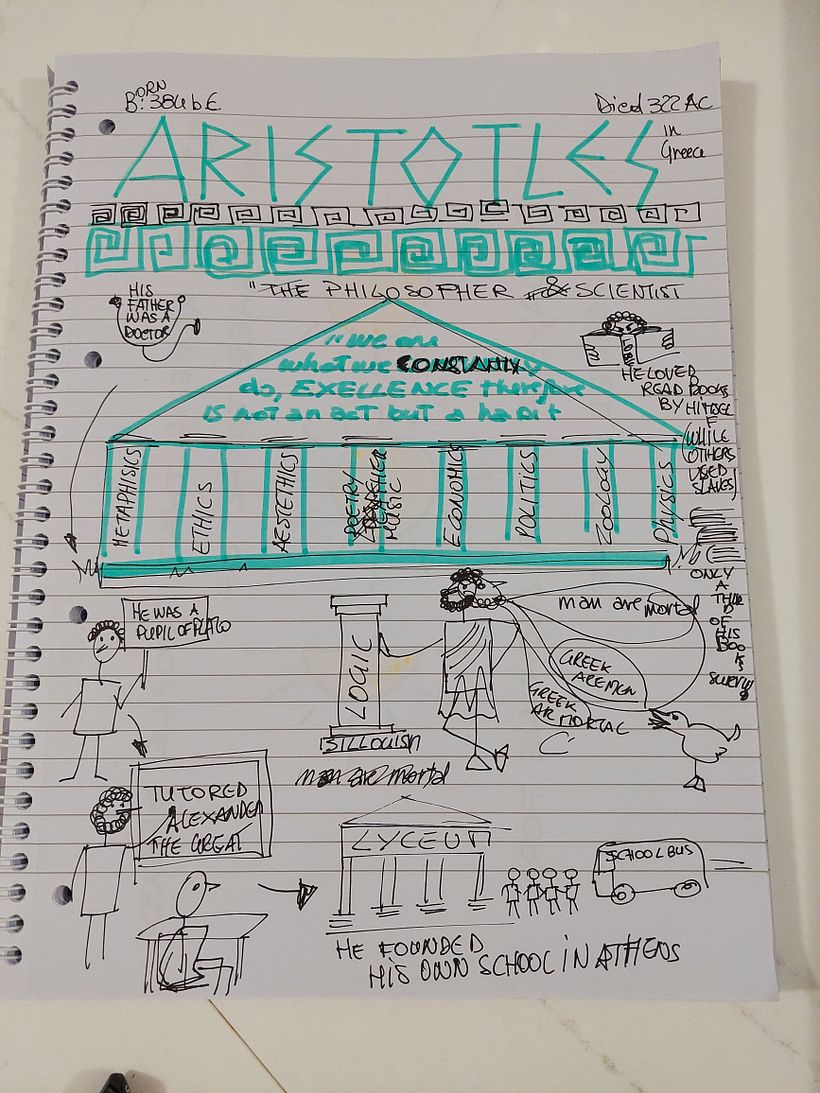 BORN
B: 384 b E
Died 322 AC
in
Greece
ARISTOTLES
"THE PHILOSOPHER & SCIENTIST
HIS
FATHER
WAS A
DOCTOR
"we are
what we CONSTANTLY
do, EXELLENCE therefore
IS not an act but a habit
HE LOVED
READ BOOKS
BY HIMSEL
F
(WHILE
OTHERS
USED
SLAVES)
METAPHISICS
ETHICS
AESTETHICS
POETRY
MUSIC
ECONOMICS
POLITICS
ZOOLOGY
Physics
ONLY
A
THIR
D
OF
HIS
BOO
K
SURVIV
HE WAS A
PUPIL OF PLATO
LOGIC
SILLOGISM
man are mortal
man are mortal
GREEK
ARE MEN
GREEK
AR MORTAL
TUTORED
ALEXANDER
THE GREAT
LYCEUM
SCHOOL BUS
HE FOUNDED
HIS OWN SCHOOL IN ATHENS